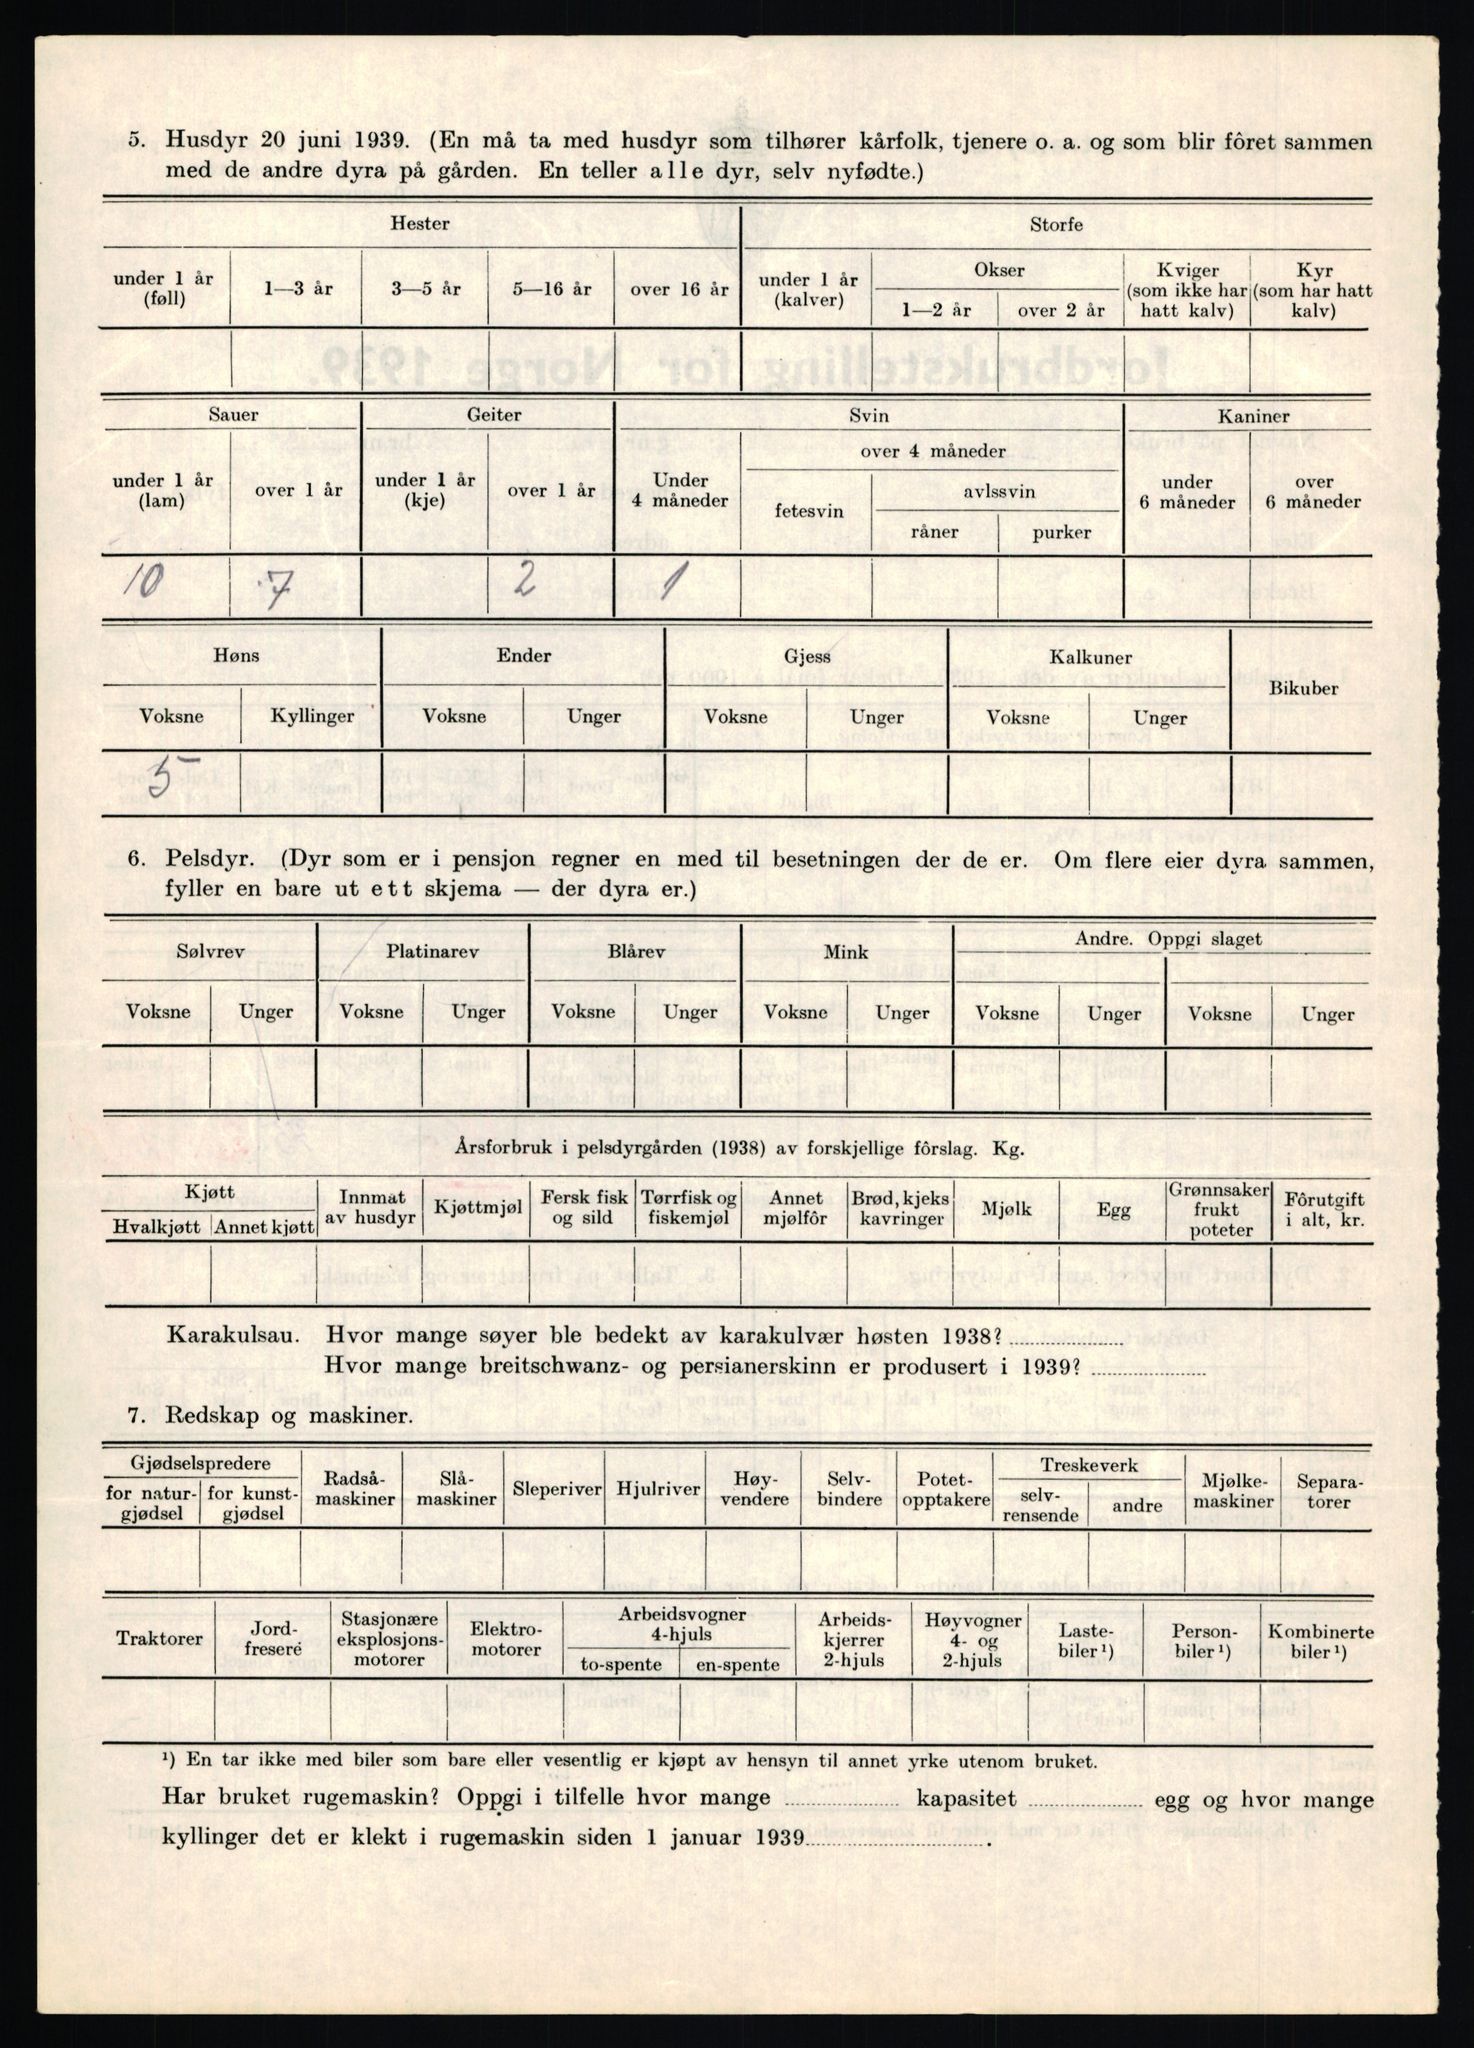 5. Husdyr 20 juni 1939. (En må ta med husdyr som tilhører kårfolk, tjenere o. a. og som blir fôret sammen
med de andre dyra på gården. En teller alle dyr, selv nyfødte.)
Hester Storfe
under 1 år (føll) 1—3 år 3—5 år 5—16 år over 16 år under 1 år (kalver) Okser 1—2 år over 2 år Kviger (som ikke har hatt kalv) Kyr (som har hatt kalv)
Sauer Geiter Svin Kaniner
under 1 år (lam) over 1 år under 1 år (kje) over 1 år Under 4 måneder over 4 måneder fetesvin avlssvin råner purker under 6 måneder over 6 måneder
10 7 2 1
Høns Ender Gjess Kalkuner Bikuber
Voksne Kyllinger Voksne Unger Voksne Unger Voksne Unger
5
6. Pelsdyr. (Dyr som er i pensjon regner en med til besetningen der de er. Om flere eier dyra sammen,
fyller en bare ut ett skjema — der dyra er.)
Sølvrev Platinarev Blårev Mink Andre. Oppgi slaget
Voksne Unger Voksne Unger Voksne Unger Voksne Unger Voksne Unger Voksne Unger
Årsforbruk i pelsdyrgården (1938) av forskjellige fôrslag. Kg.
Kjøtt Hvalkjøtt Annet kjøtt Innmat av husdyr Kjøttmjøl Fersk fisk og sild Tørrfisk og fiskemjøl Annet mjølfôr Brød, kjeks kavringer Mjølk Egg Grønnsaker frukt poteter Fôrutgift i alt, kr.
Karakulsau. Hvor mange søyer ble bedekt av karakulvær høsten 1938?
Hvor mange breitschwanz- og persianerskinn er produsert i 1939?
7. Redskap og maskiner.
Gjødselspredere for natur- gjødsel for kunst- gjødsel Radså- maskiner Slå- maskiner Sleperiver Hjulriver Høy- vendere Selv- bindere Potet- opptakere Treskeverk selv- rensende andre Mjølke- maskiner Separa- torer
Traktorer Jord- fresere Stasjonære eksplosjons- motorer Elektro- motorer Arbeidsvogner 4-hjuls to-spente en-spente Arbeids- kjerrer 2-hjuls Høyvogner 4- og 2-hjuls Laste- biler ¹) Person- biler ¹) Kombinerte biler ¹)
¹) En tar ikke med biler som bare eller vesentlig er kjøpt av hensyn til annet yrke utenom bruket.
Har bruket rugemaskin? Oppgi i tilfelle hvor mange kapasitet egg og hvor mange
kyllinger det er klekt i rugemaskin siden 1 januar 1939 .